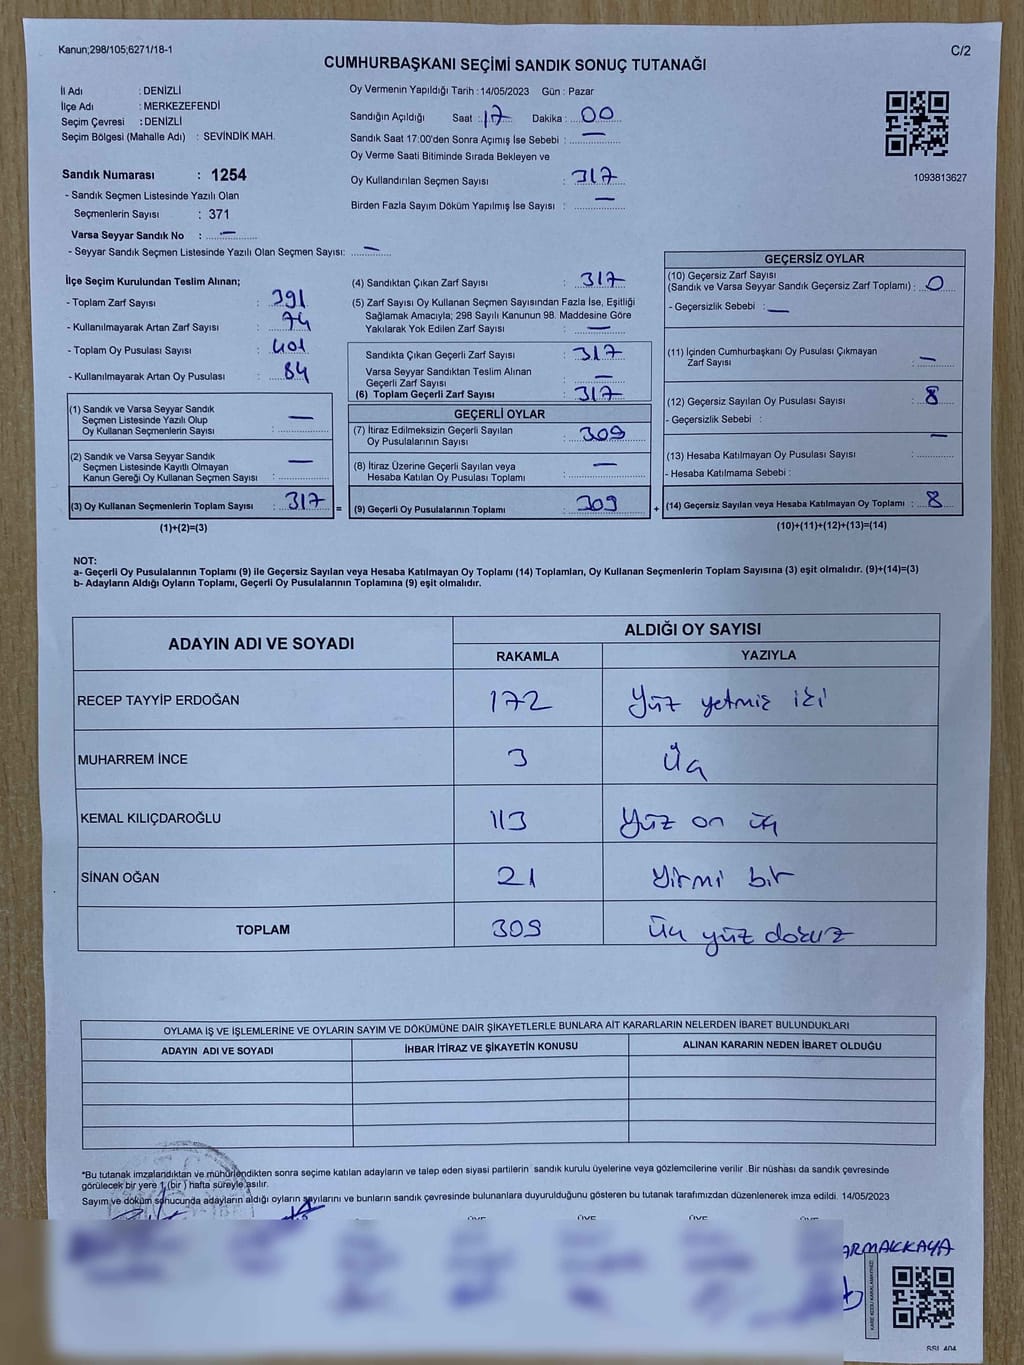 Kanun;298/105;6271/18-1
C/2
CUMHURBAŞKANI SEÇİMİ SANDIK SONUÇ TUTANAĞI
İl Adı : DENİZLİ
İlçe Adı : MERKEZEFENDİ
Seçim Çevresi : DENİZLİ
Seçim Bölgesi (Mahalle Adı) : SEVİNDİK MAH.
Sandık Numarası : 1254
- Sandık Seçmen Listesinde Yazılı Olan
Seçmenlerin Sayısı : 371
Varsa Seyyar Sandık No : —
- Seyyar Sandık Seçmen Listesinde Yazılı Olan Seçmen Sayısı: —
Oy Vermenin Yapıldığı Tarih : 14/05/2023 Gün : Pazar
Sandığın Açıldığı Saat : 17 Dakika : 00
Sandık Saat 17:00'den Sonra Açımış İse Sebebi : —
Oy Verme Saati Bitiminde Sırada Bekleyen ve
Oy Kullandırılan Seçmen Sayısı : 317
Birden Fazla Sayım Döküm Yapılmış İse Sayısı : —
1093813627
İlçe Seçim Kurulundan Teslim Alınan;
- Toplam Zarf Sayısı : 391
- Kullanılmayarak Artan Zarf Sayısı : 74
- Toplam Oy Pusulası Sayısı : 401
- Kullanılmayarak Artan Oy Pusulası : 84
(1) Sandık ve Varsa Seyyar Sandık
Seçmen Listesinde Yazılı Olup
Oy Kullanan Seçmenlerin Sayısı : —
(2) Sandık ve Varsa Seyyar Sandık
Seçmen Listesinde Kayıtlı Olmayan
Kanun Gereği Oy Kullanan Seçmen Sayısı : —
(3) Oy Kullanan Seçmenlerin Toplam Sayısı : 317
(1)+(2)=(3)
(4) Sandıktan Çıkan Zarf Sayısı : 317
(5) Zarf Sayısı Oy Kullanan Seçmen Sayısından Fazla İse, Eşitliği
Sağlamak Amacıyla; 298 Sayılı Kanunun 98. Maddesine Göre
Yakılarak Yok Edilen Zarf Sayısı : —
Sandıkta Çıkan Geçerli Zarf Sayısı : 317
Varsa Seyyar Sandıktan Teslim Alınan
Geçerli Zarf Sayısı : —
(6) Toplam Geçerli Zarf Sayısı : 317
GEÇERLİ OYLAR
(7) İtiraz Edilmeksizin Geçerli Sayılan
Oy Pusulalarının Sayısı : 309
(8) İtiraz Üzerine Geçerli Sayılan veya
Hesaba Katılan Oy Pusulası Toplamı : —
= (9) Geçerli Oy Pusulalarının Toplamı : 309 +
GEÇERSİZ OYLAR
(10) Geçersiz Zarf Sayısı
(Sandık ve Varsa Seyyar Sandık Geçersiz Zarf Toplamı) : 0
- Geçersizlik Sebebi : —
(11) İçinden Cumhurbaşkanı Oy Pusulası Çıkmayan
Zarf Sayısı : —
(12) Geçersiz Sayılan Oy Pusulası Sayısı : 8
- Geçersizlik Sebebi :
(13) Hesaba Katılmayan Oy Pusulası Sayısı : —
- Hesaba Katılmama Sebebi :
(14) Geçersiz Sayılan veya Hesaba Katılmayan Oy Toplamı : 8
(10)+(11)+(12)+(13)=(14)
NOT:
a- Geçerli Oy Pusulalarının Toplamı (9) ile Geçersiz Sayılan veya Hesaba Katılmayan Oy Toplamı (14) Toplamları, Oy Kullanan Seçmenlerin Toplam Sayısına (3) eşit olmalıdır. (9)+(14)=(3)
b- Adayların Aldığı Oyların Toplamı, Geçerli Oy Pusulalarının Toplamına (9) eşit olmalıdır.
ADAYIN ADI VE SOYADI ALDIĞI OY SAYISI
RAKAMLA YAZIYLA
RECEP TAYYİP ERDOĞAN 172 Yüz yetmiş iki
MUHARREM İNCE 3 Üç
KEMAL KILIÇDAROĞLU 113 Yüz on üç
SİNAN OĞAN 21 Yirmi bir
TOPLAM 309 Üç yüz dokuz
OYLAMA İŞ VE İŞLEMLERİNE VE OYLARIN SAYIM VE DÖKÜMÜNE DAİR ŞİKAYETLERLE BUNLARA AİT KARARLARIN NELERDEN İBARET BULUNDUKLARI
ADAYIN ADI VE SOYADI İHBAR İTİRAZ VE ŞİKAYETİN KONUSU ALINAN KARARIN NEDEN İBARET OLDUĞU
*Bu tutanak imzalandıktan ve mühürlendikten sonra seçime katılan adayların ve talep eden siyasi partilerin sandık kurulu üyelerine veya gözlemcilerine verilir .Bir nüshası da sandık çevresinde
görülecek bir yere 1 (bir ) hafta süreyle asılır.
Sayım ve döküm sonucunda adayların aldığı oyların sayılarını ve bunların sandık çevresinde bulunanlara duyurulduğunu gösteren bu tutanak tarafımızdan düzenlenerek imza edildi. 14/05/2023
ÜYE ÜYE ÜYE ÜYE
ARMAKKAYA